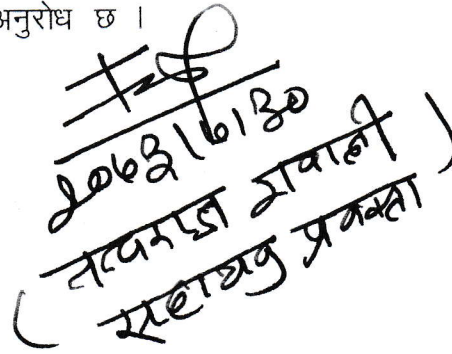 अनुरोध छ ।
२०७३।७।३०
( तत्वराज ज्ञवाली )
सहायक प्रवक्ता